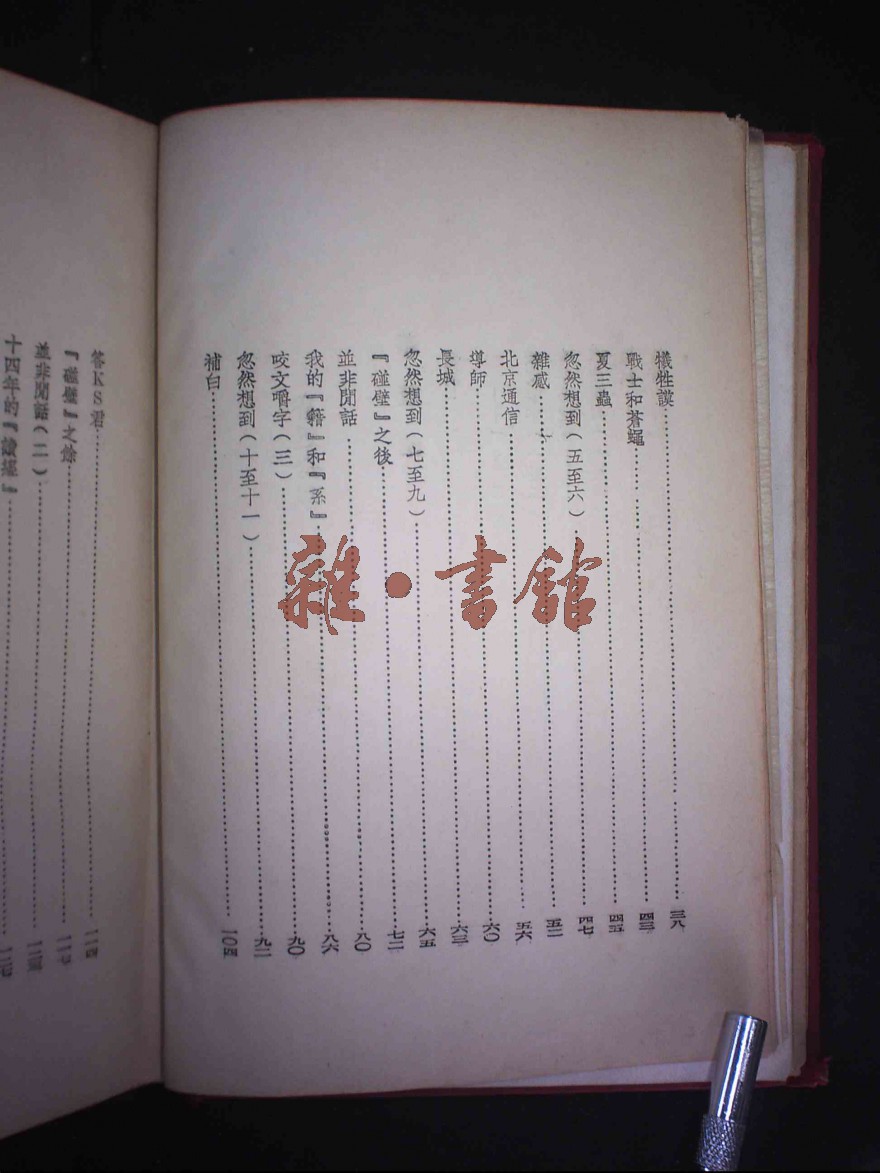 犧牲謨……三八
戰士和蒼蠅……四三
夏三蟲……四五
忽然想到(五至六)……四七
雜感……五二
北京通信……五六
導師……六〇
長城……六三
忽然想到(七至九)……六五
『碰壁』之後……七二
並非閒話……八〇
我的『籍』和『系』……八六
咬文嚼字(三)……九〇
忽然想到(十至十一)……九二
補白……一〇四
答KS君……一一四
『碰壁』之餘……一一七
並非閒話(二)……
十四年的『讀經』……
雜·書館